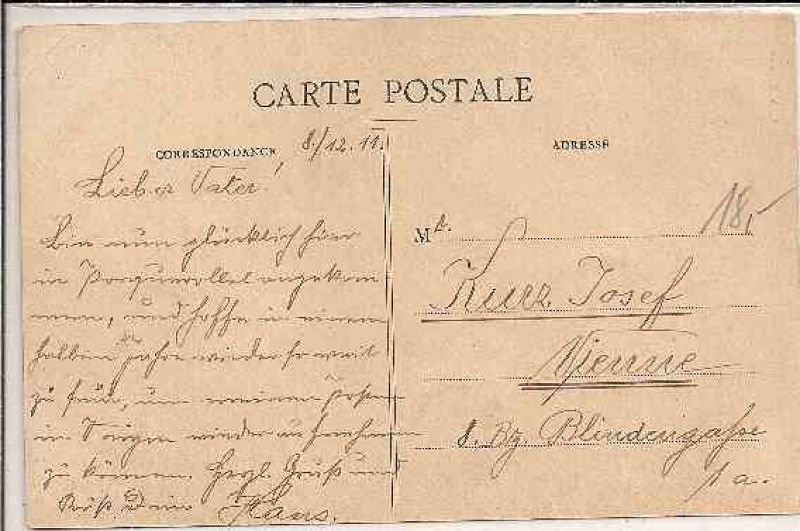 CARTE POSTALE
CORRESPONDANCE 8/12.11.
Lieber Vater!
Bin nun glücklich hier
in angekom
men, und hoffe in einem
halben Jahre wieder so weit
zu sein, um meinen Posten
in wieder aufnehmen
zu können. Herzl. Gruß und
Kuß Dein Hans.
ADRESSE
18,-
Mr.
Kurz Josef
Vienne
8. Bz. Blindengasse
1a.